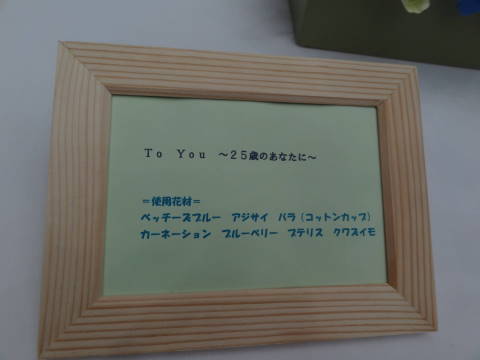 To You ～25歳のあなたに～
＝使用花材＝
ベッチーズブルー アジサイ バラ（コットンカップ）
カーネーション ブルーベリー プテリス クワズイモ